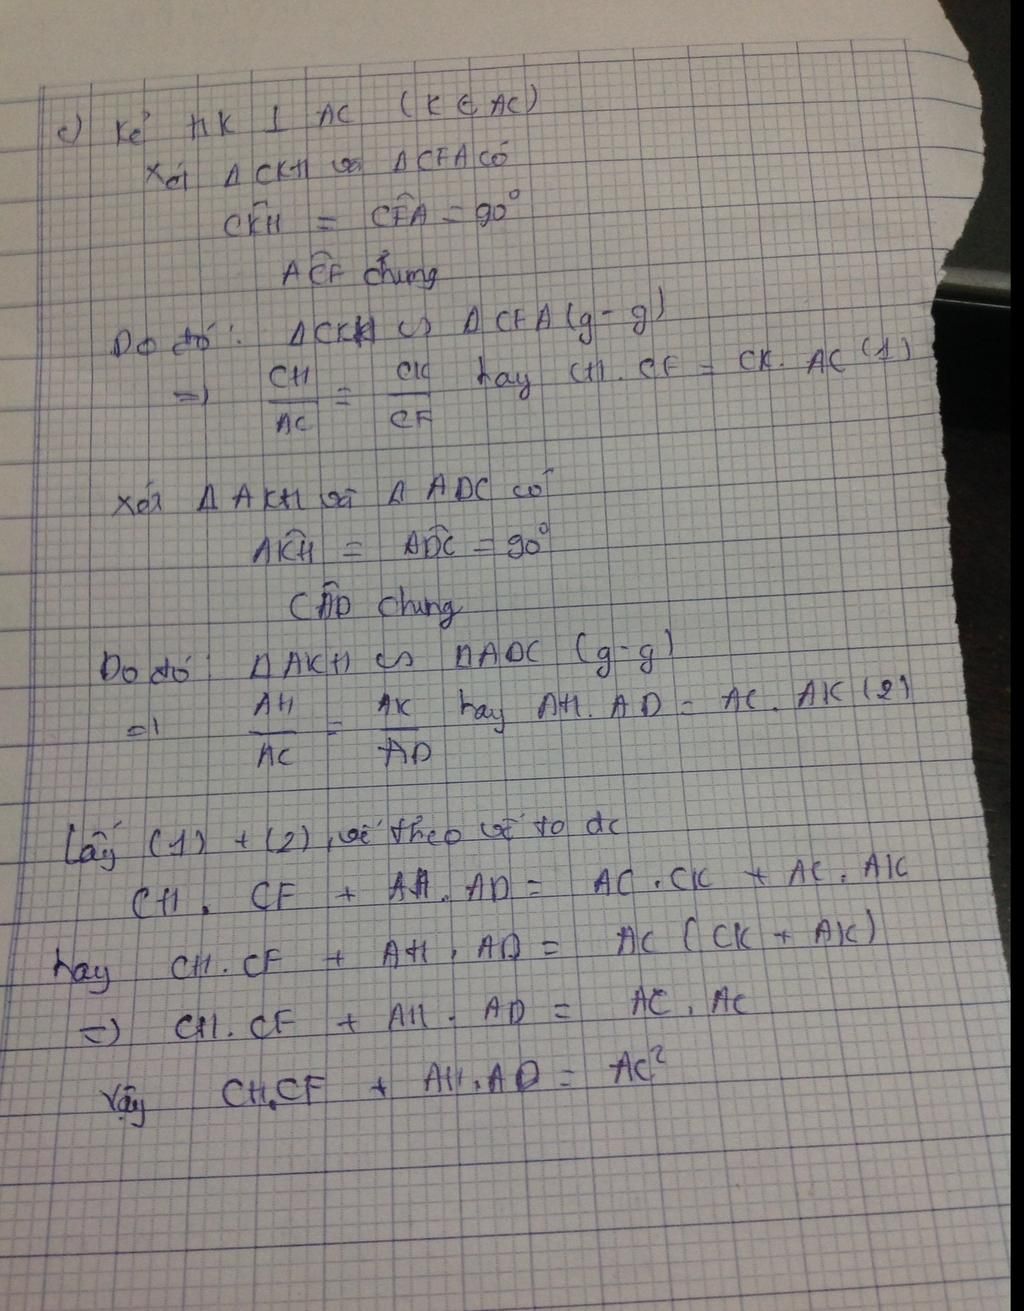 c) Kẻ HK ⊥ AC (K ∈ AC)
Xét ΔCKH và ΔCFA có
CKH = CFA = 90°
ACF chung
Do đó: ΔCKH ∽ ΔCFA (g-g)
=> CH/AC = CK/CF hay CH. CF = CK. AC (1)
Xét ΔAKH và ΔADC có
AKH = ADC = 90°
CAD chung
Do đó: ΔAKH ∽ ΔADC (g-g)
=> AH/AC = AK/AD hay AH. AD = AC. AK (2)
Lấy (1) + (2), vế theo vế ta dc
CH. CF + AH. AD = AC. CK + AC. AK
hay CH. CF + AH. AD = AC (CK + AK)
=> CH. CF + AH. AD = AC. AC
Vậy CH.CF + AH.AD = AC²